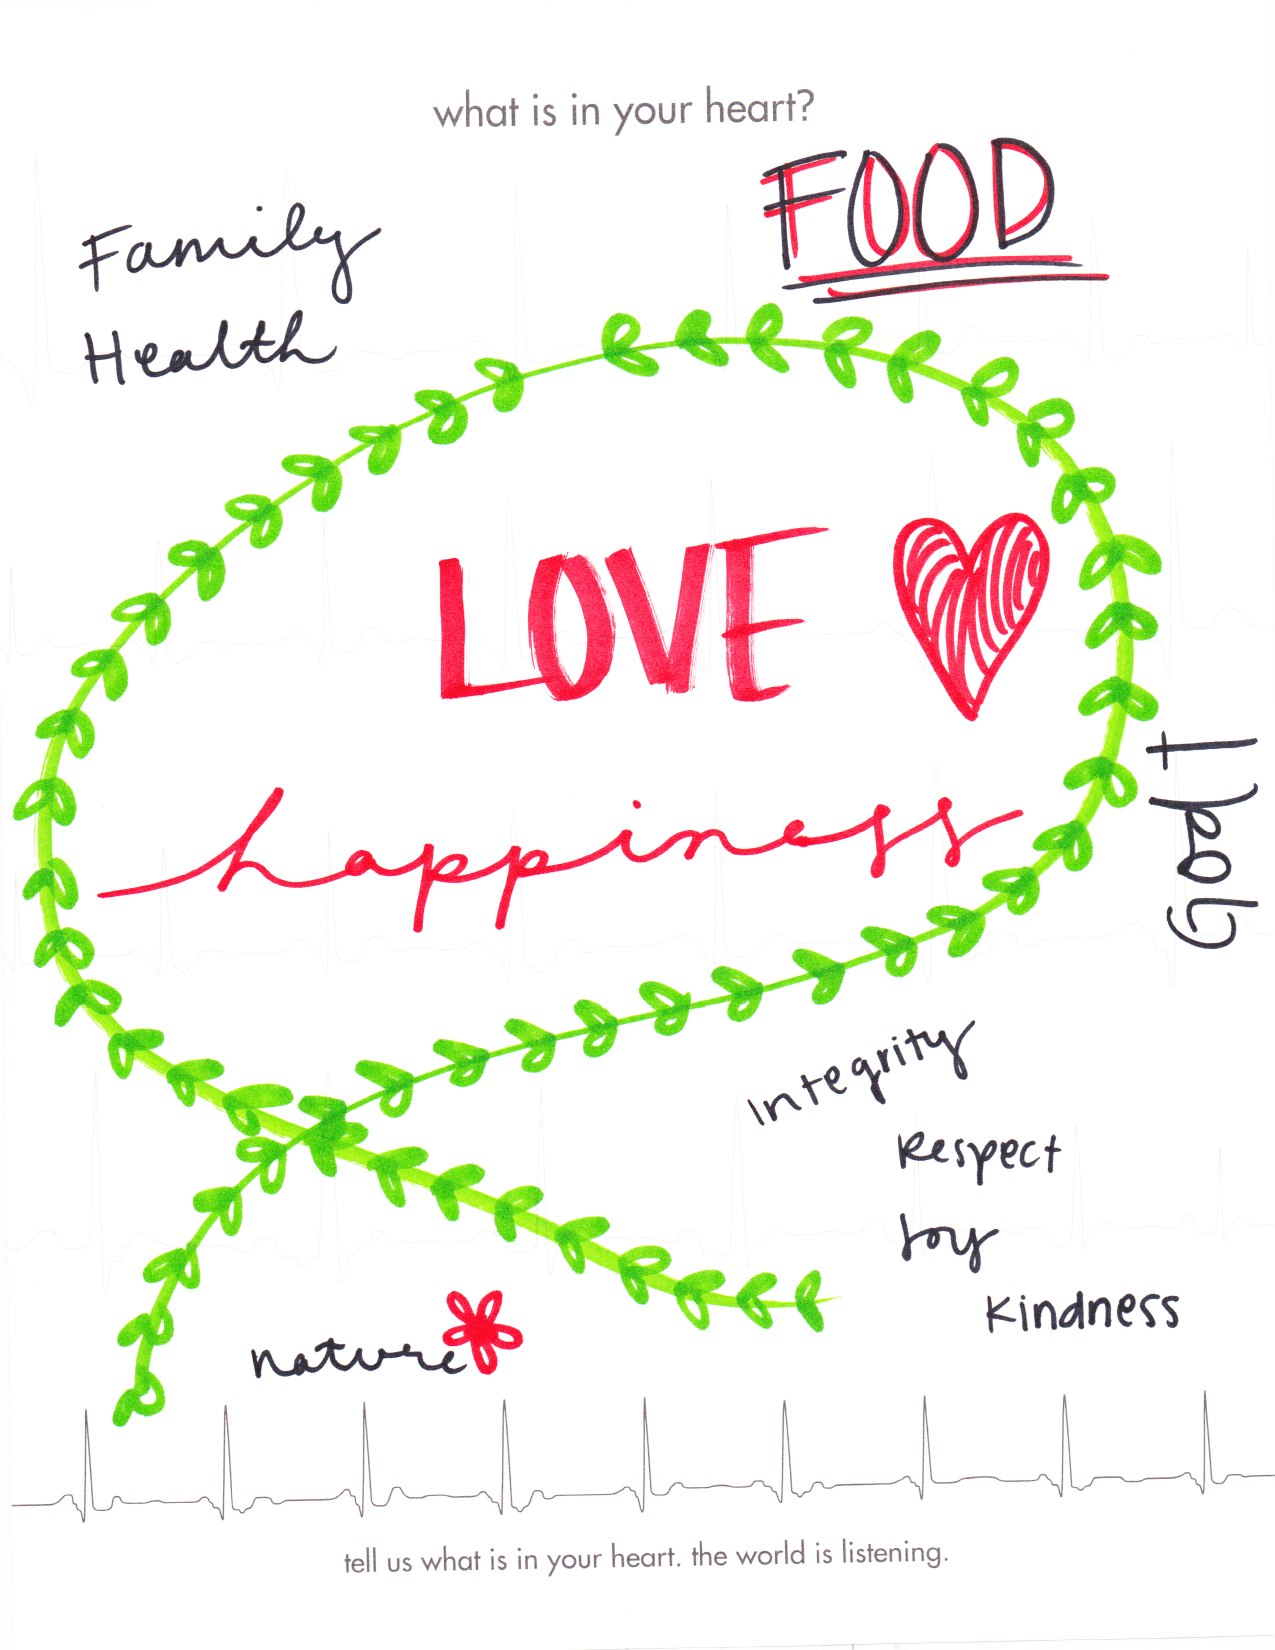 what is in your heart?
FOOD
Family
Health
LOVE
happiness
Integrity
Respect
Joy
Kindness
nature
tell us what is in your heart. the world is listening.